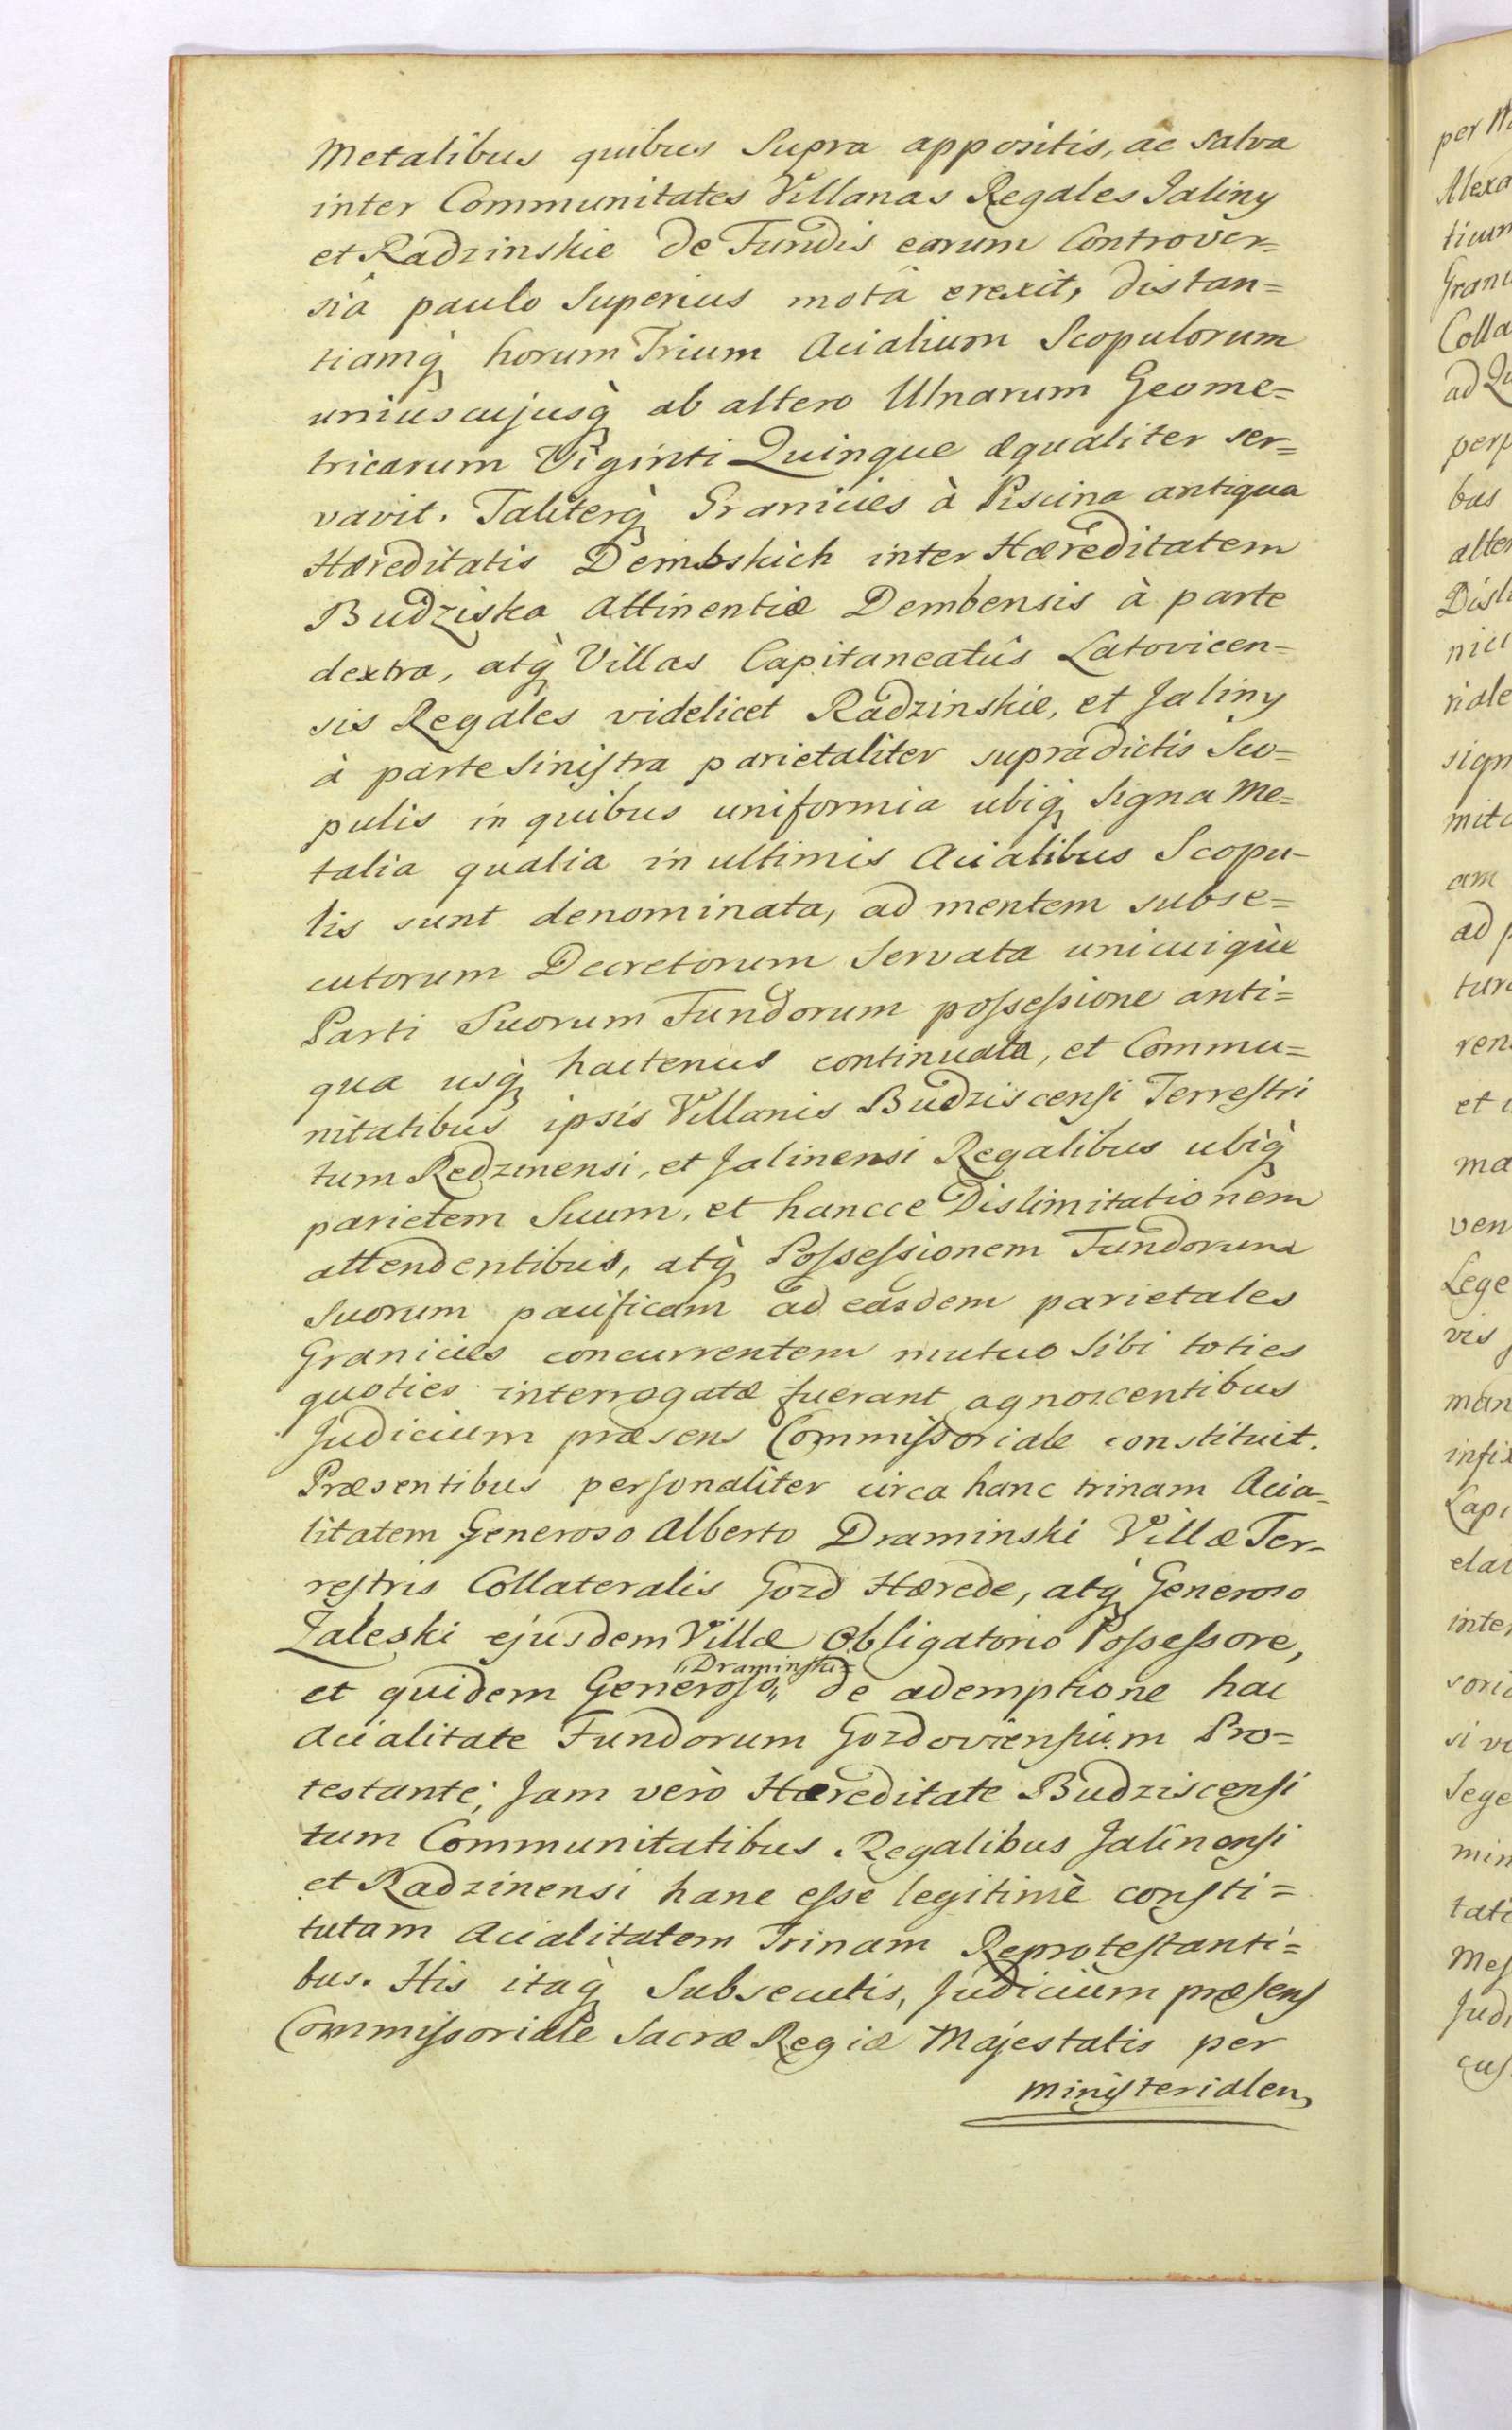 Metalibus quibus Supra appositis, ac salva
inter Communitates Villanas Regales Jaliny
et Radzinskie de Fundis earum Controver=
siâ paulo Superius motâ erexit, distan=
tiamq̀ horum Trium Acialium Scopulorum
uniuscujusq̀ ab altero Ulnarum Geome=
tricarum Viginti Quinque æqualiter ser=
vavit. Taliterq̀ Granicies à Piscina antiqua
Hæreditatis Dembskich inter Hæreditatem
Budziska Attinentiæ Dembensis à parte
dextra, atq̀ Villas Capitaneatûs Latovicen=
sis Regales videlicet Radzinskie, et Jaliny
à parte Siniſtra parietaliter supradictis Sco=
pulis in quibus uniformia ubiq̀ Signa Me=
talia qualia in ultimis Acialibus Scopu-
lis sunt denominata, ad mentem subse=
cutorum Decretorum Servata unicuiqùe
Parti Suorum Fundorum poſseſsione anti=
qua usq̀ hactenus continuata, et Commu=
nitatibus ipsis Villanis Budziscenſi Terreſtri
tum Redzinensi, et Jalinensi Regalibus ubiq̀
parietem Suum, et hancce Dislimitationem
attendentibus, atq̀ Poſseſsionem Fundorum
Suorum pacificam ad easdem parietales
Granicies concurrentem mutuo Sibi toties
quoties interrogatæ fuerant agnoscentibus
Judicium præsens Commiſsoriale constituit.
Præsentibus perſonaliter circa hanc trinam Acia-
litatem Generoso Alberto Draminski Villæ Ter-
reſtris Collateralis Gozd Hærede, atq̀ Generoso
Zaleski ejusdem Villæ Obligatorio Poſseſsore,
et quidem Generoſo „Draminſki„ de ademptione hac
Acialitate Fundorum Gozdovienſium Pro=
testante; Jam verò Hæreditate Budziscenſi
tum Communitatibus Regalibus Jalinenſi
et Radzinensi hanc eſse legitimè conſti=
tutam Acialitatem Trinam Reproteſtanti=
bus. His itaq̀ Subsecutis, Judicium præſenſ
Commiſsoriale Sacræ Regiæ Majestatis per
Miniſterialem